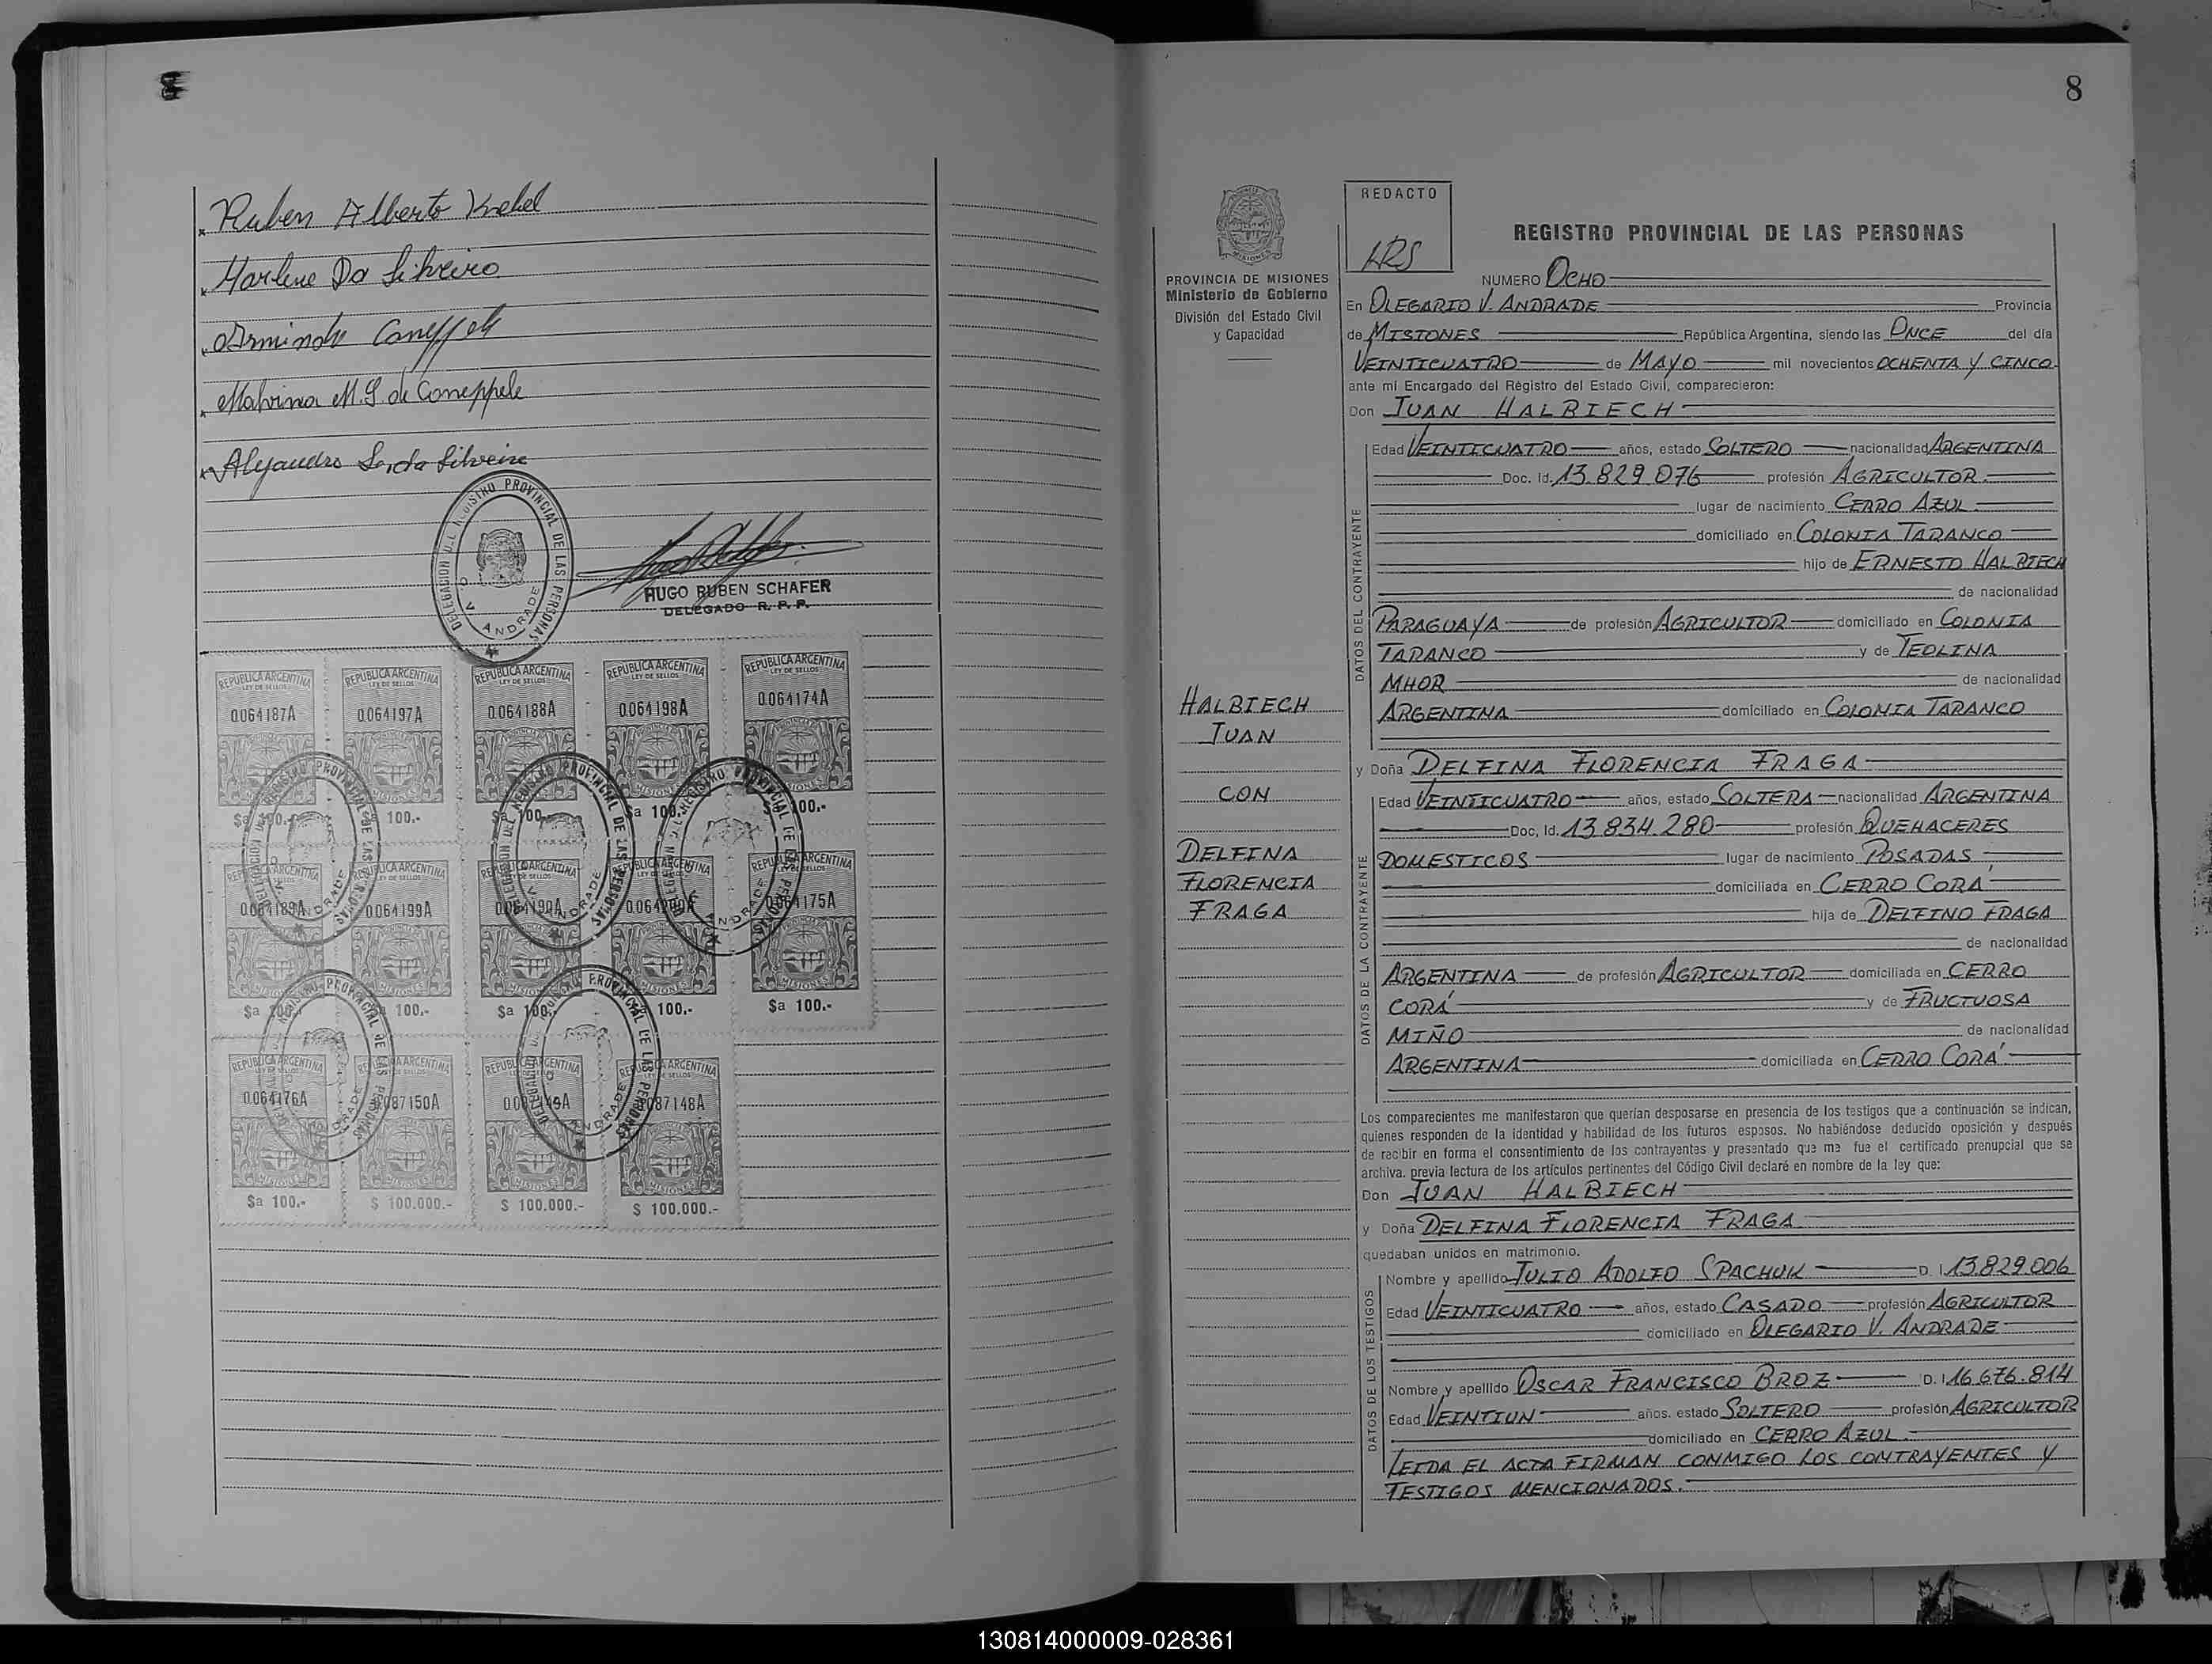 Ruben Alberto Krebel
Marlene Da Silveira
Armindo Coneppele
Malvina M. G de Coneppele
Alejandro Da Silveira
DELEGACION DEL REGISTRO PROVINCIAL DE LAS PERSONAS
O V ANDRADE
HUGO RUBEN SCHAFER
DELEGADO R. P. P.
REPUBLICA ARGENTINA REPUBLICA ARGENTINA REPUBLICA ARGENTINA REPUBLICA ARGENTINA REPUBLICA ARGENTINA
LEY DE SELLOS LEY DE SELLOS LEY DE SELLOS LEY DE SELLOS LEY DE SELLOS
0064187A 0064197A 0064188A 0064198A 0064174A
MISIONES MISIONES MISIONES MISIONES MISIONES
$a 100.- 100.- $a 100.- $a 100.- $a 100.-
REPUBLICA ARGENTINA REPUBLICA ARGENTINA REPUBLICA ARGENTINA REPUBLICA ARGENTINA REPUBLICA ARGENTINA
0064189A 0064199A 0064190A 0064200A 0064175A
MISIONES MISIONES MISIONES MISIONES MISIONES
$a 100.- 100.- $a 100.- 100.- $a 100.-
REPUBLICA ARGENTINA REPUBLICA ARGENTINA REPUBLICA ARGENTINA REPUBLICA ARGENTINA
0064176A 0087150A 0087149A 0087148A
MISIONES MISIONES MISIONES MISIONES
$a 100.- $ 100.000.- $ 100.000.- $ 100.000.-
8
REDACTO
HRS
PROVINCIA DE MISIONES
Ministerio de Gobierno
División del Estado Civil
y Capacidad
HALBIECH
JUAN
CON
DELFINA
FLORENCIA
FRAGA
REGISTRO PROVINCIAL DE LAS PERSONAS
NUMERO OCHO
En OLEGARIO V. ANDRADE Provincia
de MISIONES República Argentina, siendo las ONCE del día
VEINTICUATRO de MAYO mil novecientos OCHENTA Y CINCO
ante mí Encargado del Registro del Estado Civil, comparecieron:
Don JUAN HALBIECH
DATOS DEL CONTRAYENTE
Edad VEINTICUATRO años, estado SOLTERO nacionalidad ARGENTINA
Doc. Id. 13.829.076 profesión AGRICULTOR
lugar de nacimiento CERRO AZUL
domiciliado en COLONIA TARANCO
hijo de ERNESTO HALBIECH
de nacionalidad
PARAGUAYA de profesión AGRICULTOR domiciliado en COLONIA
TARANCO y de TEOLINA
MHOR de nacionalidad
ARGENTINA domiciliado en COLONIA TARANCO
y Doña DELFINA FLORENCIA FRAGA
DATOS DE LA CONTRAYENTE
Edad VEINTICUATRO años, estado SOLTERA nacionalidad ARGENTINA
Doc. Id. 13.834.280 profesión QUEHACERES
DOMESTICOS lugar de nacimiento POSADAS
domiciliada en CERRO CORÁ
hija de DELFINO FRAGA
de nacionalidad
ARGENTINA de profesión AGRICULTOR domiciliada en CERRO
CORÁ y de FRUCTUOSA
MIÑO de nacionalidad
ARGENTINA domiciliada en CERRO CORÁ
Los comparecientes me manifestaron que querían desposarse en presencia de los testigos que a continuación se indican,
quienes responden de la identidad y habilidad de los futuros esposos. No habiéndose deducido oposición y después
de recibir en forma el consentimiento de los contrayentes y presentado que me fue el certificado prenupcial que se
archiva, previa lectura de los artículos pertinentes del Código Civil declaré en nombre de la ley que:
Don JUAN HALBIECH
y Doña DELFINA FLORENCIA FRAGA
quedaban unidos en matrimonio.
DATOS DE LOS TESTIGOS
Nombre y apellido JULIO ADOLFO SPACHUK D. I 13.829.006
Edad VEINTICUATRO años, estado CASADO profesión AGRICULTOR
domiciliado en OLEGARIO V. ANDRADE
Nombre y apellido OSCAR FRANCISCO BROZ D. I 16.676.814
Edad VEINTIUN años, estado SOLTERO profesión AGRICULTOR
domiciliado en CERRO AZUL
LEIDA EL ACTA FIRMAN CONMIGO LOS CONTRAYENTES Y
TESTIGOS MENCIONADOS.
130814000009-028361